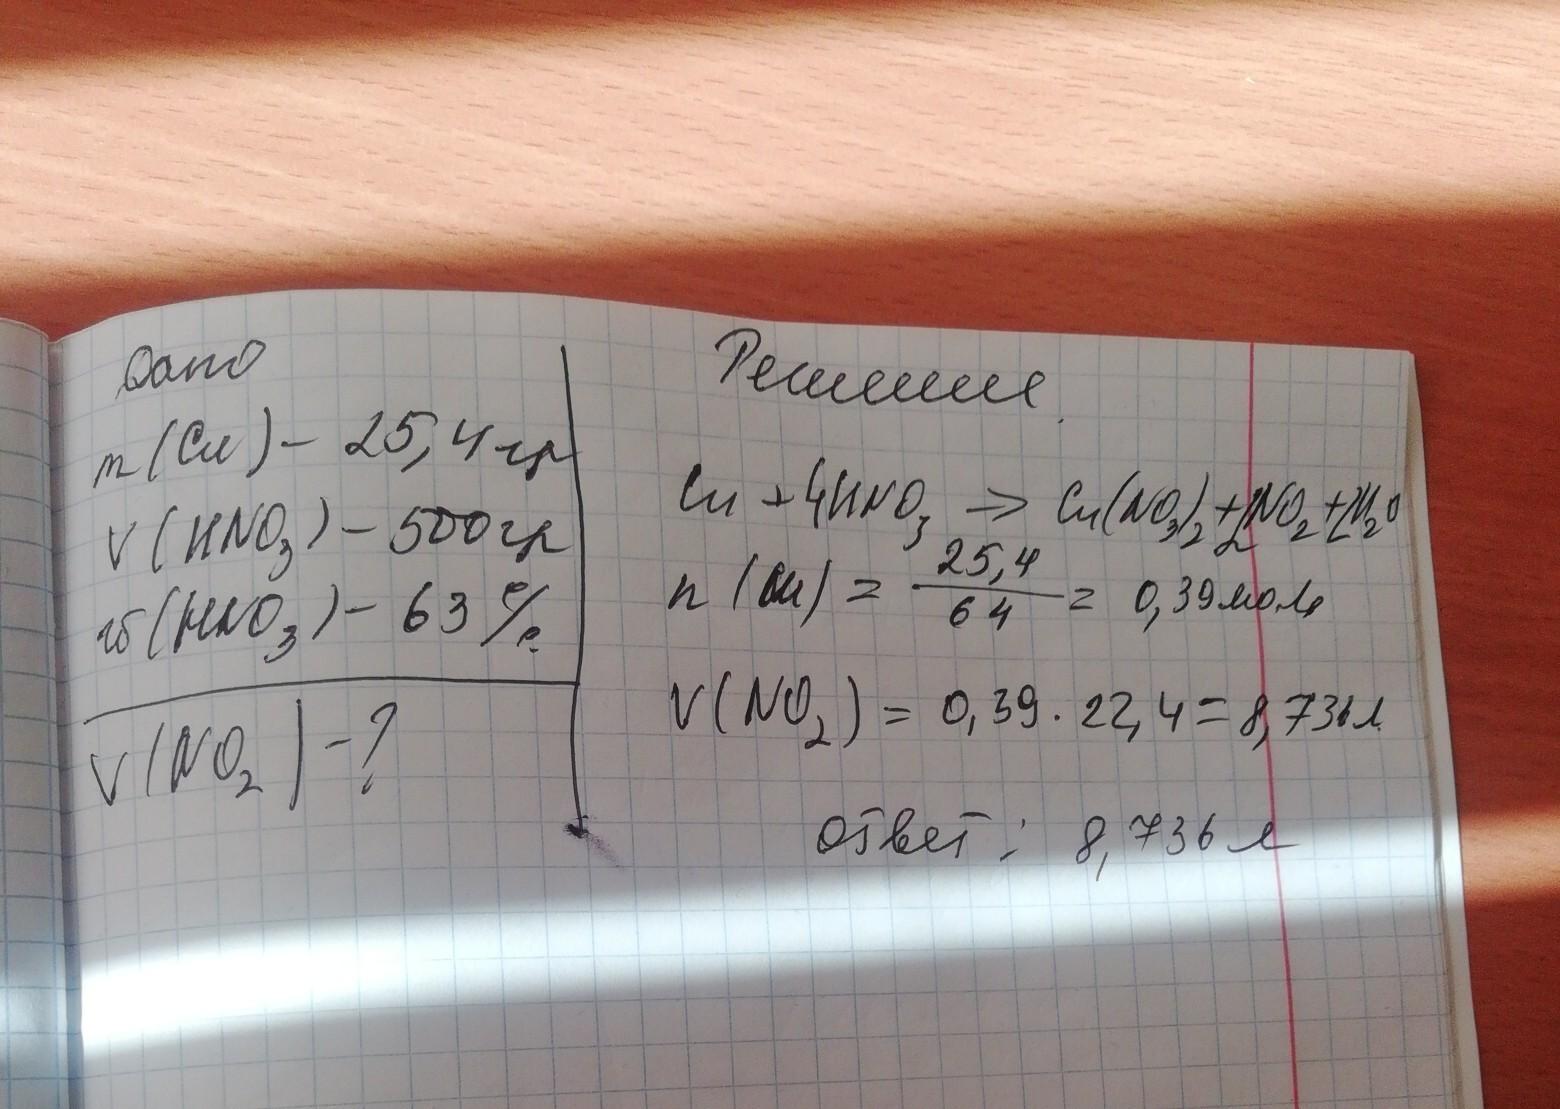 Дано
m(Cu) - 25,4 гр
V(HNO3) - 500 гр
w(HNO3) - 63%
V(NO2) - ?
Решение
Cu + 4HNO3 → Cu(NO3)2 + 2NO2 + 2H2O
n(Cu) = 25,4/64 = 0,39 моль
V(NO2) = 0,39 · 22,4 = 8,736 л
Ответ: 8,736 л